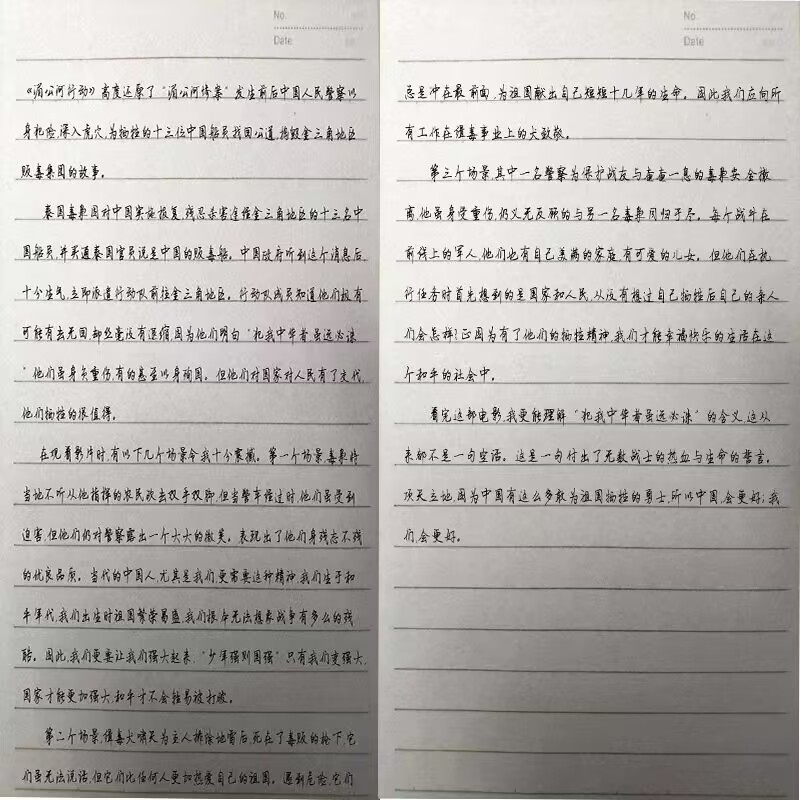 No.
Date
《湄公河行动》高度还原了“湄公河惨案”发生前后中国人民警察以
身犯险,深入虎穴,为牺牲的十三位中国船员找回公道,捣毁金三角地区
贩毒集团的故事。
泰国毒枭因对中国实施报复,残忍杀害途径金三角地区的十三名中
国船员,并买通泰国官员说是中国的贩毒船。中国政府听到这个消息后
十分生气,立即派遣行动队前往金三角地区。行动队成员知道他们极有
可能有去无回却丝毫没有退宿,因为他们明白“犯我中华者虽远必诛
”他们虽身负重伤,有的甚至以身殉国。但他们对国家对人民有了交代,
他们牺牲的很值得。
在观看影片时,有以下几个场景令我十分震撼。第一个场景,毒枭将
当地不听从他指挥的农民砍去双手双脚,但当警车经过时,他们虽受到
迫害,但他们仍对警察露出一个大大的微笑。表现出了他们身残志不残
的优良品质。当代的中国人,尤其是我们,更需要这种精神,我们生于和
平年代,我们出生时祖国繁荣昌盛,我们根本无法想象战争有多么的残
酷。因此,我们更要让我们强大起来,“少年强则国强”只有我们变强大,
国家才能更加强大,和平才不会轻易被打破。
第二个场景,缉毒犬啸天为主人排除地雷后,死在了毒贩的枪下,它
们虽无法说话,但它们比任何人更加热爱自己的祖国。遇到危险,它们
No.
Date
总是冲在最前面,为祖国献出自己短短十几年的生命。因此我们应向所
有工作在缉毒事业上的犬致敬。
第三个场景,其中一名警察为保护战友与奄奄一息的毒枭安全撤
离,他虽身受重伤,仍义无反顾的与另一名毒枭同归于尽。每个战斗在
前线上的军人,他们也有自己美满的家庭,有可爱的儿女。但他们在执
行任务时首先想到的是国家和人民,从没有想过自己牺牲后自己的亲人
们会怎样?正因为有了他们的牺牲精神,我们才能幸福快乐的生活在这
个和平的社会中。
看完这部电影,我更能理解“犯我中华者虽远必诛”的含义,这从
来都不是一句空话。这是一句付出了无数战士的热血与生命的誓言。
顶天立地,因为中国有这么多敢为祖国牺牲的勇士,所以中国,会更好;我
们,会更好。